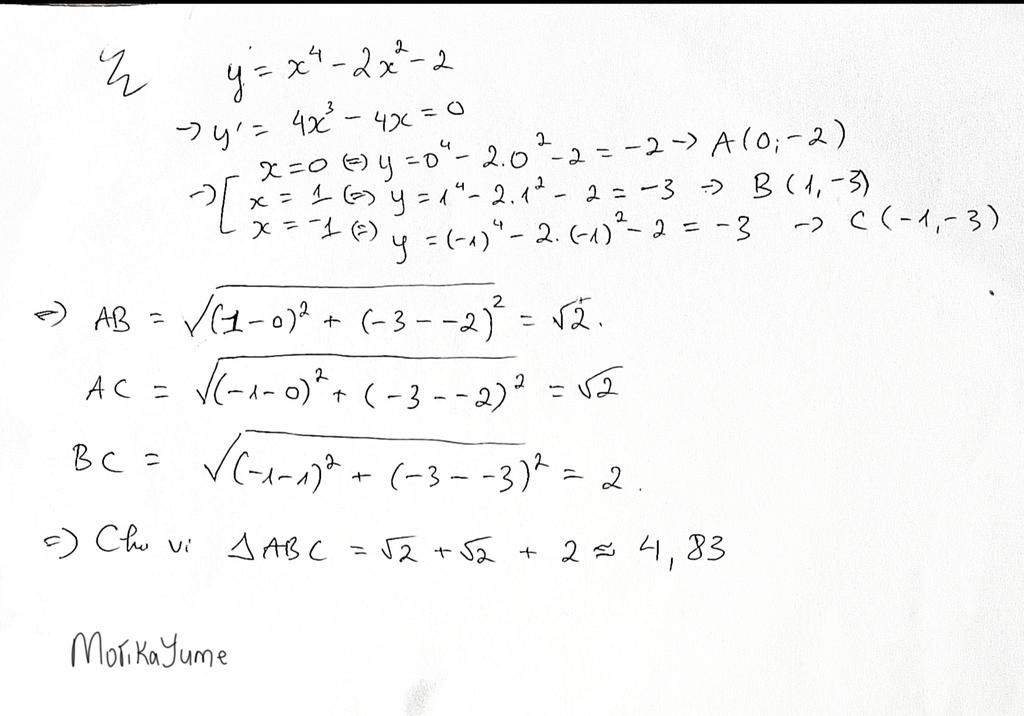 y = x⁴ - 2x² - 2
→ y' = 4x³ - 4x = 0
x = 0 (=) y = 0⁴ - 2.0² - 2 = -2 → A(0; -2)
→ [ x = 1 (=) y = 1⁴ - 2.1² - 2 = -3 → B (1, -3)
x = -1 (=) y = (-1)⁴ - 2.(-1)² - 2 = -3 → C (-1, -3)
=) AB = √((1-0)² + (-3 - -2)²) = √2.
AC = √((-1-0)² + (-3 - -2)²) = √2
BC = √((-1-1)² + (-3 - -3)²) = 2.
=) Chu vi ΔABC = √2 + √2 + 2 ≈ 4,83
MorikaYume